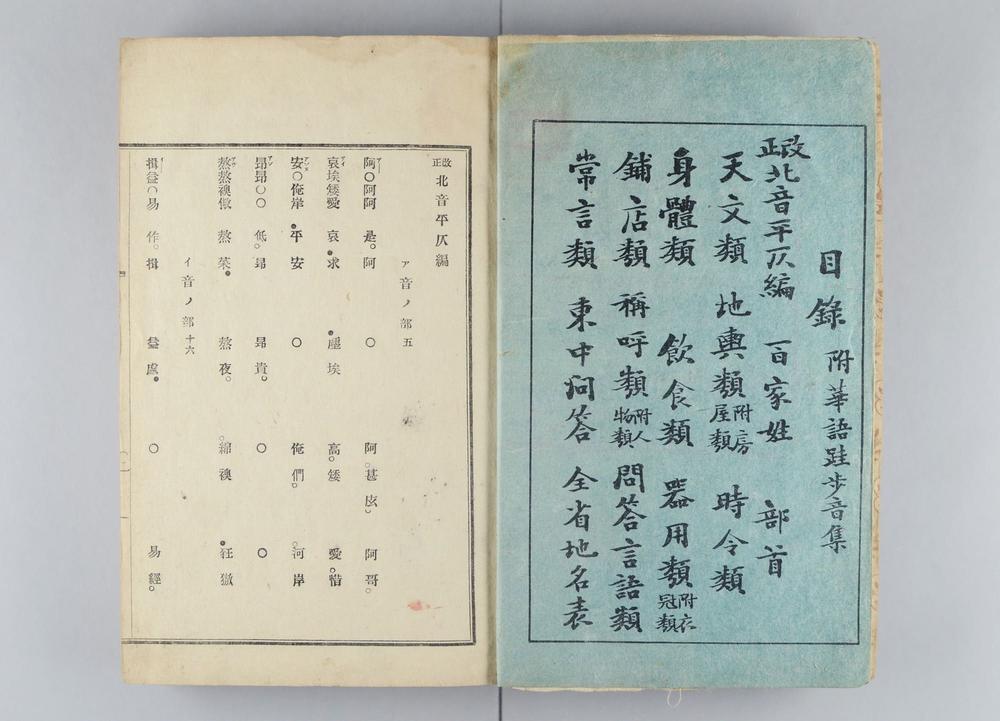 目錄 附華語跬步音集
改正北音平仄編 百家姓 部首
天文類 地輿類附房屋類 時令類
身體類 飲食類 器用類附衣冠類
鋪店類 稱呼類附人物類 問答言語類
常言類 東中问答 全省地名表
改正北音平仄編
ア音ノ部五
阿〇阿阿 是。阿 〇 阿。甚庅。 阿哥。
哀埃矮愛 哀。求 。塵埃 高。矮 愛。惜
安〇俺岸 。平安 〇 俺們。 。河岸
昂昂〇〇 低。昂 昂貴。 〇 〇
熬熬襖傲 熬菜。 熬夜。 。綿襖 。狂傲
イ音ノ部十六
揖益〇易 作。揖 益處。 〇 易經。